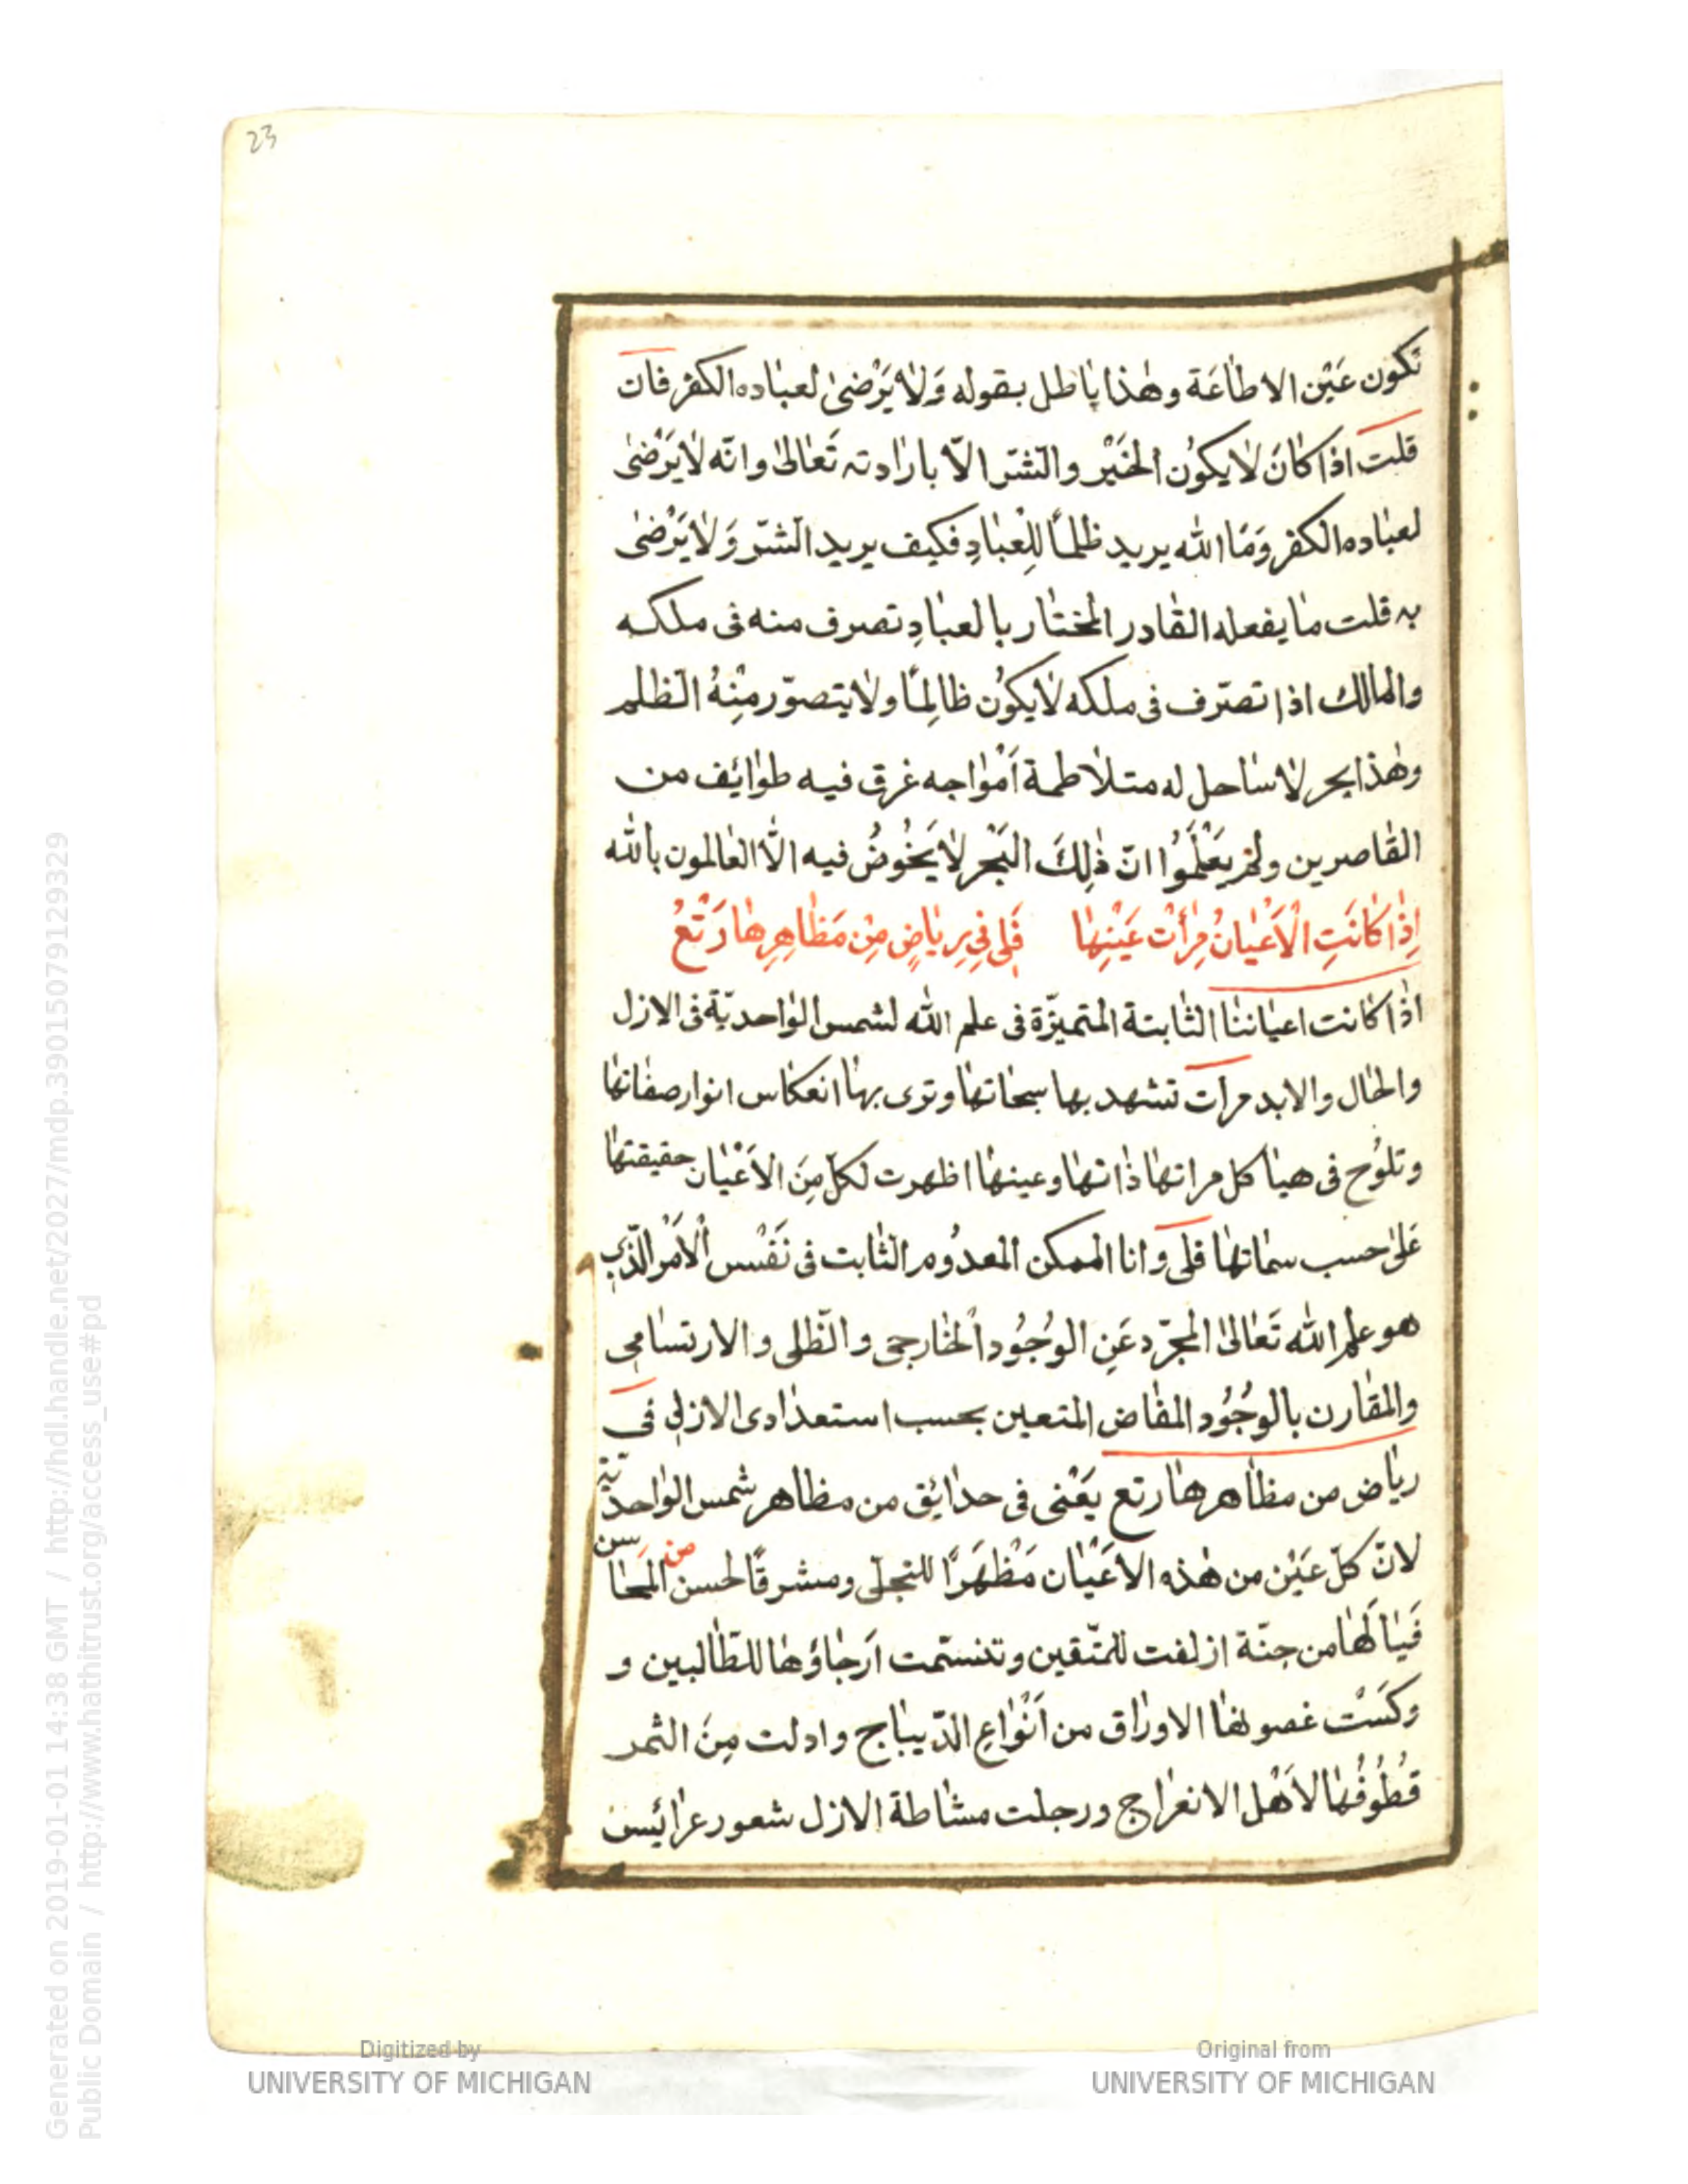 23
تكون عَيْن الاطاعَة وهٰذا باطل بقوله وَلا يَرْضىٰ لعباده الكفر فان
قلت اذا كانَ لا يكوُن الخَيْر والشّر الّا بارادته تَعالىٰ وانّه لا يَرْضىٰ
لعباده الكفر وَمَا الله يريد ظلمًا للِْعبادِ فكيف يريد الشّر وَلا يَرْضىٰ
به قلت ما يفعله القادر المختار بالعبادِ تصرف منه فى ملكه
والمالك اذا تصرّف فى ملكه لا يكوُن ظالِمًا ولا يتصوّر مِنْهُ الظلم
وهٰذا بحر لا ساحل له متلاطمة اَمْواجه غرق فيه طوائف من
القاصرين ولمْ يَعْلَموُا انّ ذٰلِكَ البَحْر لا يَخوُضُ فيه الّا العالمون بالله
اِذٰا كٰانَتِ الْاَعْيٰانُ مِرْأتْ عَيْنِهٰا فَلى فى رِيٰاضٍ مِنْ مَظٰاهِرِهٰا رَتْعُ
اذا كانت اعياننا الثابتة المتميّزة فى علم الله لشمس الواحديّة فى الازل
والحال والابد مرات تشهد بها سبحاتها وترى بها انعكاس انوار صفاتها
وتلوُح فى هياكل مراتها ذاتها وعينها اظهرت لكلّ مِنَ الاَعْيان حقيقتها
عَلىٰ حسب سماتها فلى وانا الممكن المعدوُم الثابت فى نَفْس الْاَمْر الّذي
هو علم الله تَعالىٰ المجرّد عَنِ الوُجُود الخارجى والظّلى والارتسامى
والمقارن بالوجُوُد المفاض المتعين بحسب استعدادى الازلى فى
رياض من مظاهرها رتع يَعْنى فى حدائق من مظاهر شمس الواحديّة
لانّ كلّ عَيْن من هٰذه الاَعْيان مَظْهَرًا للتجلّى ومشرقًا لحسن من المحاسن
فَيا لَها من جنّة ازلفت للمتّقين وتنسّمت اَرجاؤُها للطّالبين و
وكَسَتْ غصونها الاوراق من اَنْواعِ الدّيباج وادلت مِنَ الثمر
قُطُوفُها لاَهْل الانعراج ورجلت مشاطة الازل شعور عرائس
Generated on 2019-01-01 14:38 GMT / http://hdl.handle.net/2027/mdp.39015079129329
Public Domain / http://www.hathitrust.org/access_use#pd
Digitized by
UNIVERSITY OF MICHIGAN
Original from
UNIVERSITY OF MICHIGAN